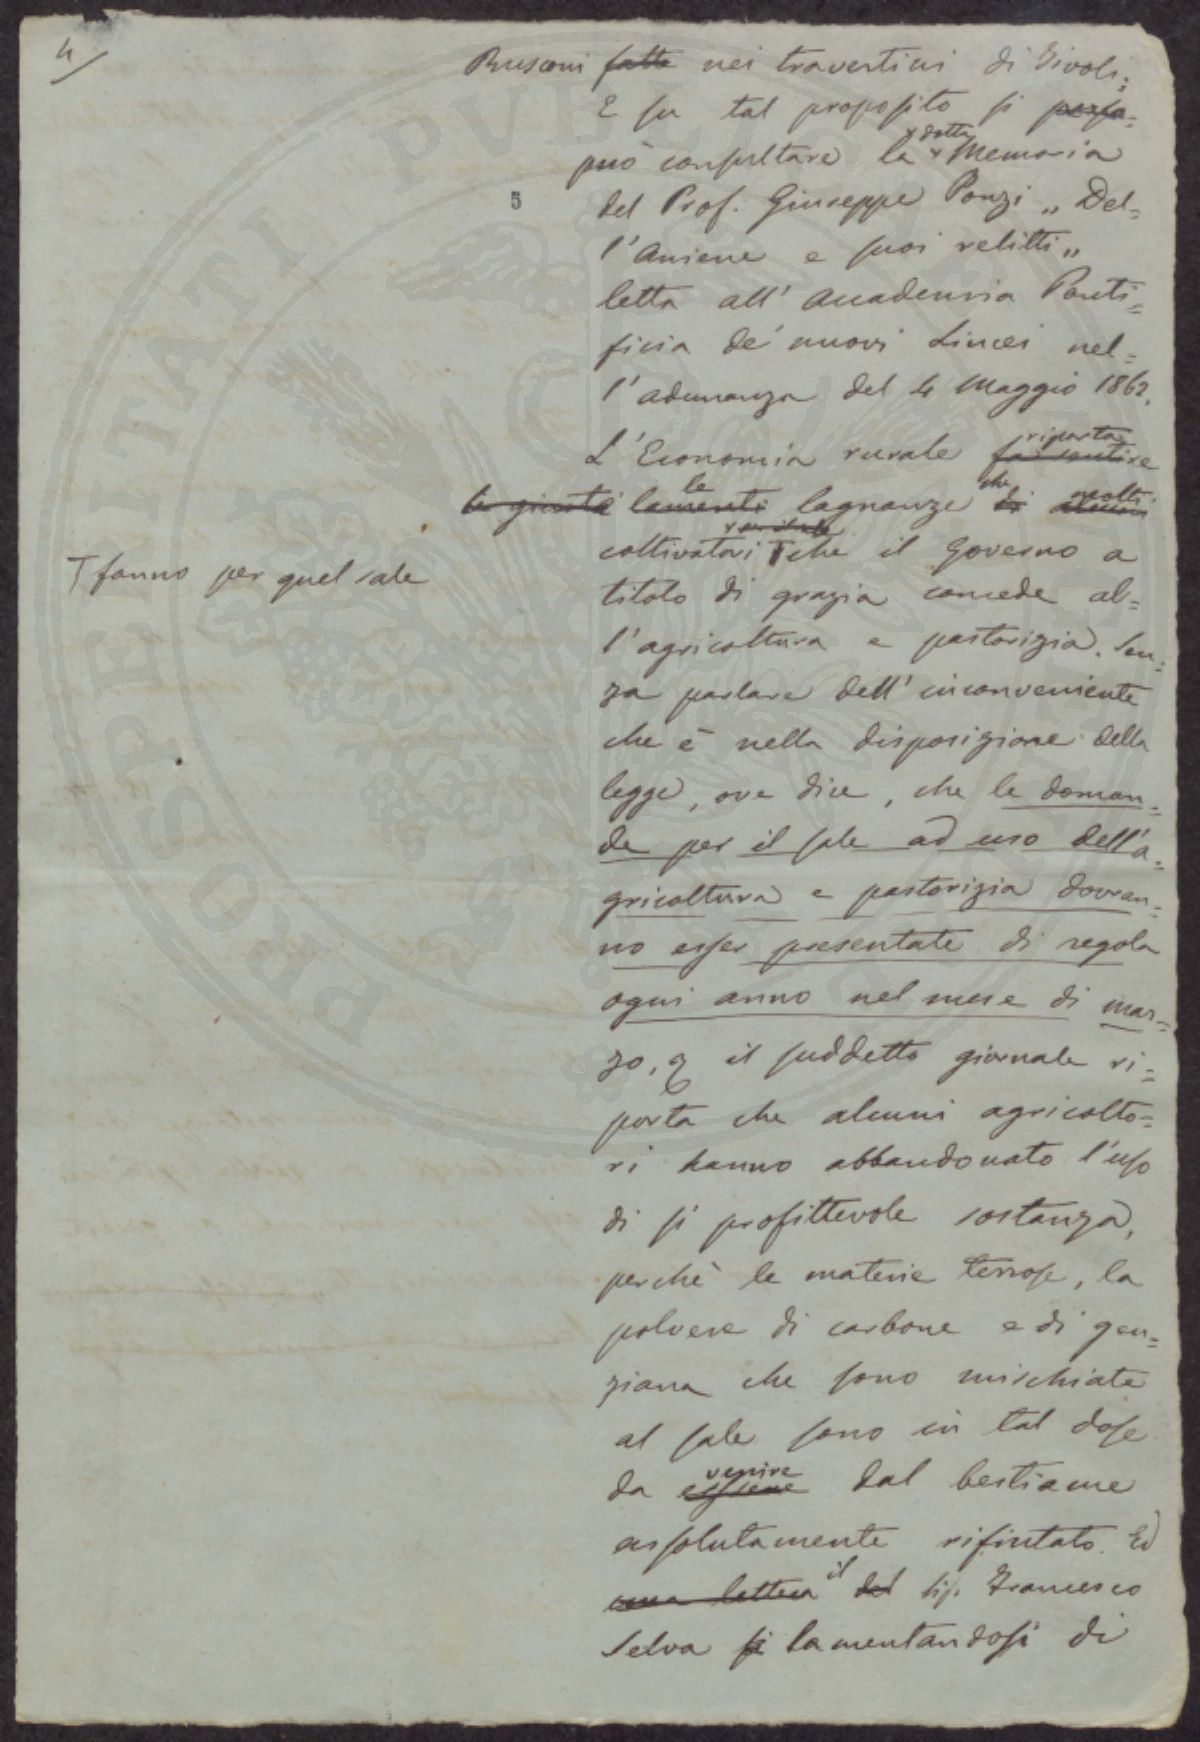 4/
Rusconi fatte nei travertini di Tivoli;
E su tal proposito si posso=
può consultare la dotta Memoria
5
del Prof. Giuseppe Ponzi „ Del=
l'Aniene e suoi relitti „
letta all' Accademia Ponti=
ficia de' nuovi Lincei nel=
l'adunanza del 4 Maggio 1862.
riporta
L'Economia rurale fa sentire
le che molti
le giuste lamenti lagnanze di alcuni
coltivatori T che il Governo a
T fanno per quel sale
titolo di grazia concede al=
l'agricoltura e pastorizia. Sen=
za parlare dell' inconveniente
che è nella disposizione della
legge, ove dice, che le doman=
de per il sale ad uso dell'a=
gricoltura e pastorizia dovran=
no esser presentate di regola
ogni anno nel mese di mar=
zo, il suddetto giornale ri=
porta che alcuni agricolto=
ri hanno abbandonato l'uso
di sì profittevole sostanza,
perchè le materie terrose, la
polvere di carbone e di gen=
ziana che sono mischiate
al sale sono in tal dose
venire
da essere dal bestiame
assolutamente rifiutato. Ed
una lettera il del Sig. Francesco
Selva si lamentandosi di
PROSPERITATI PVBLICAE